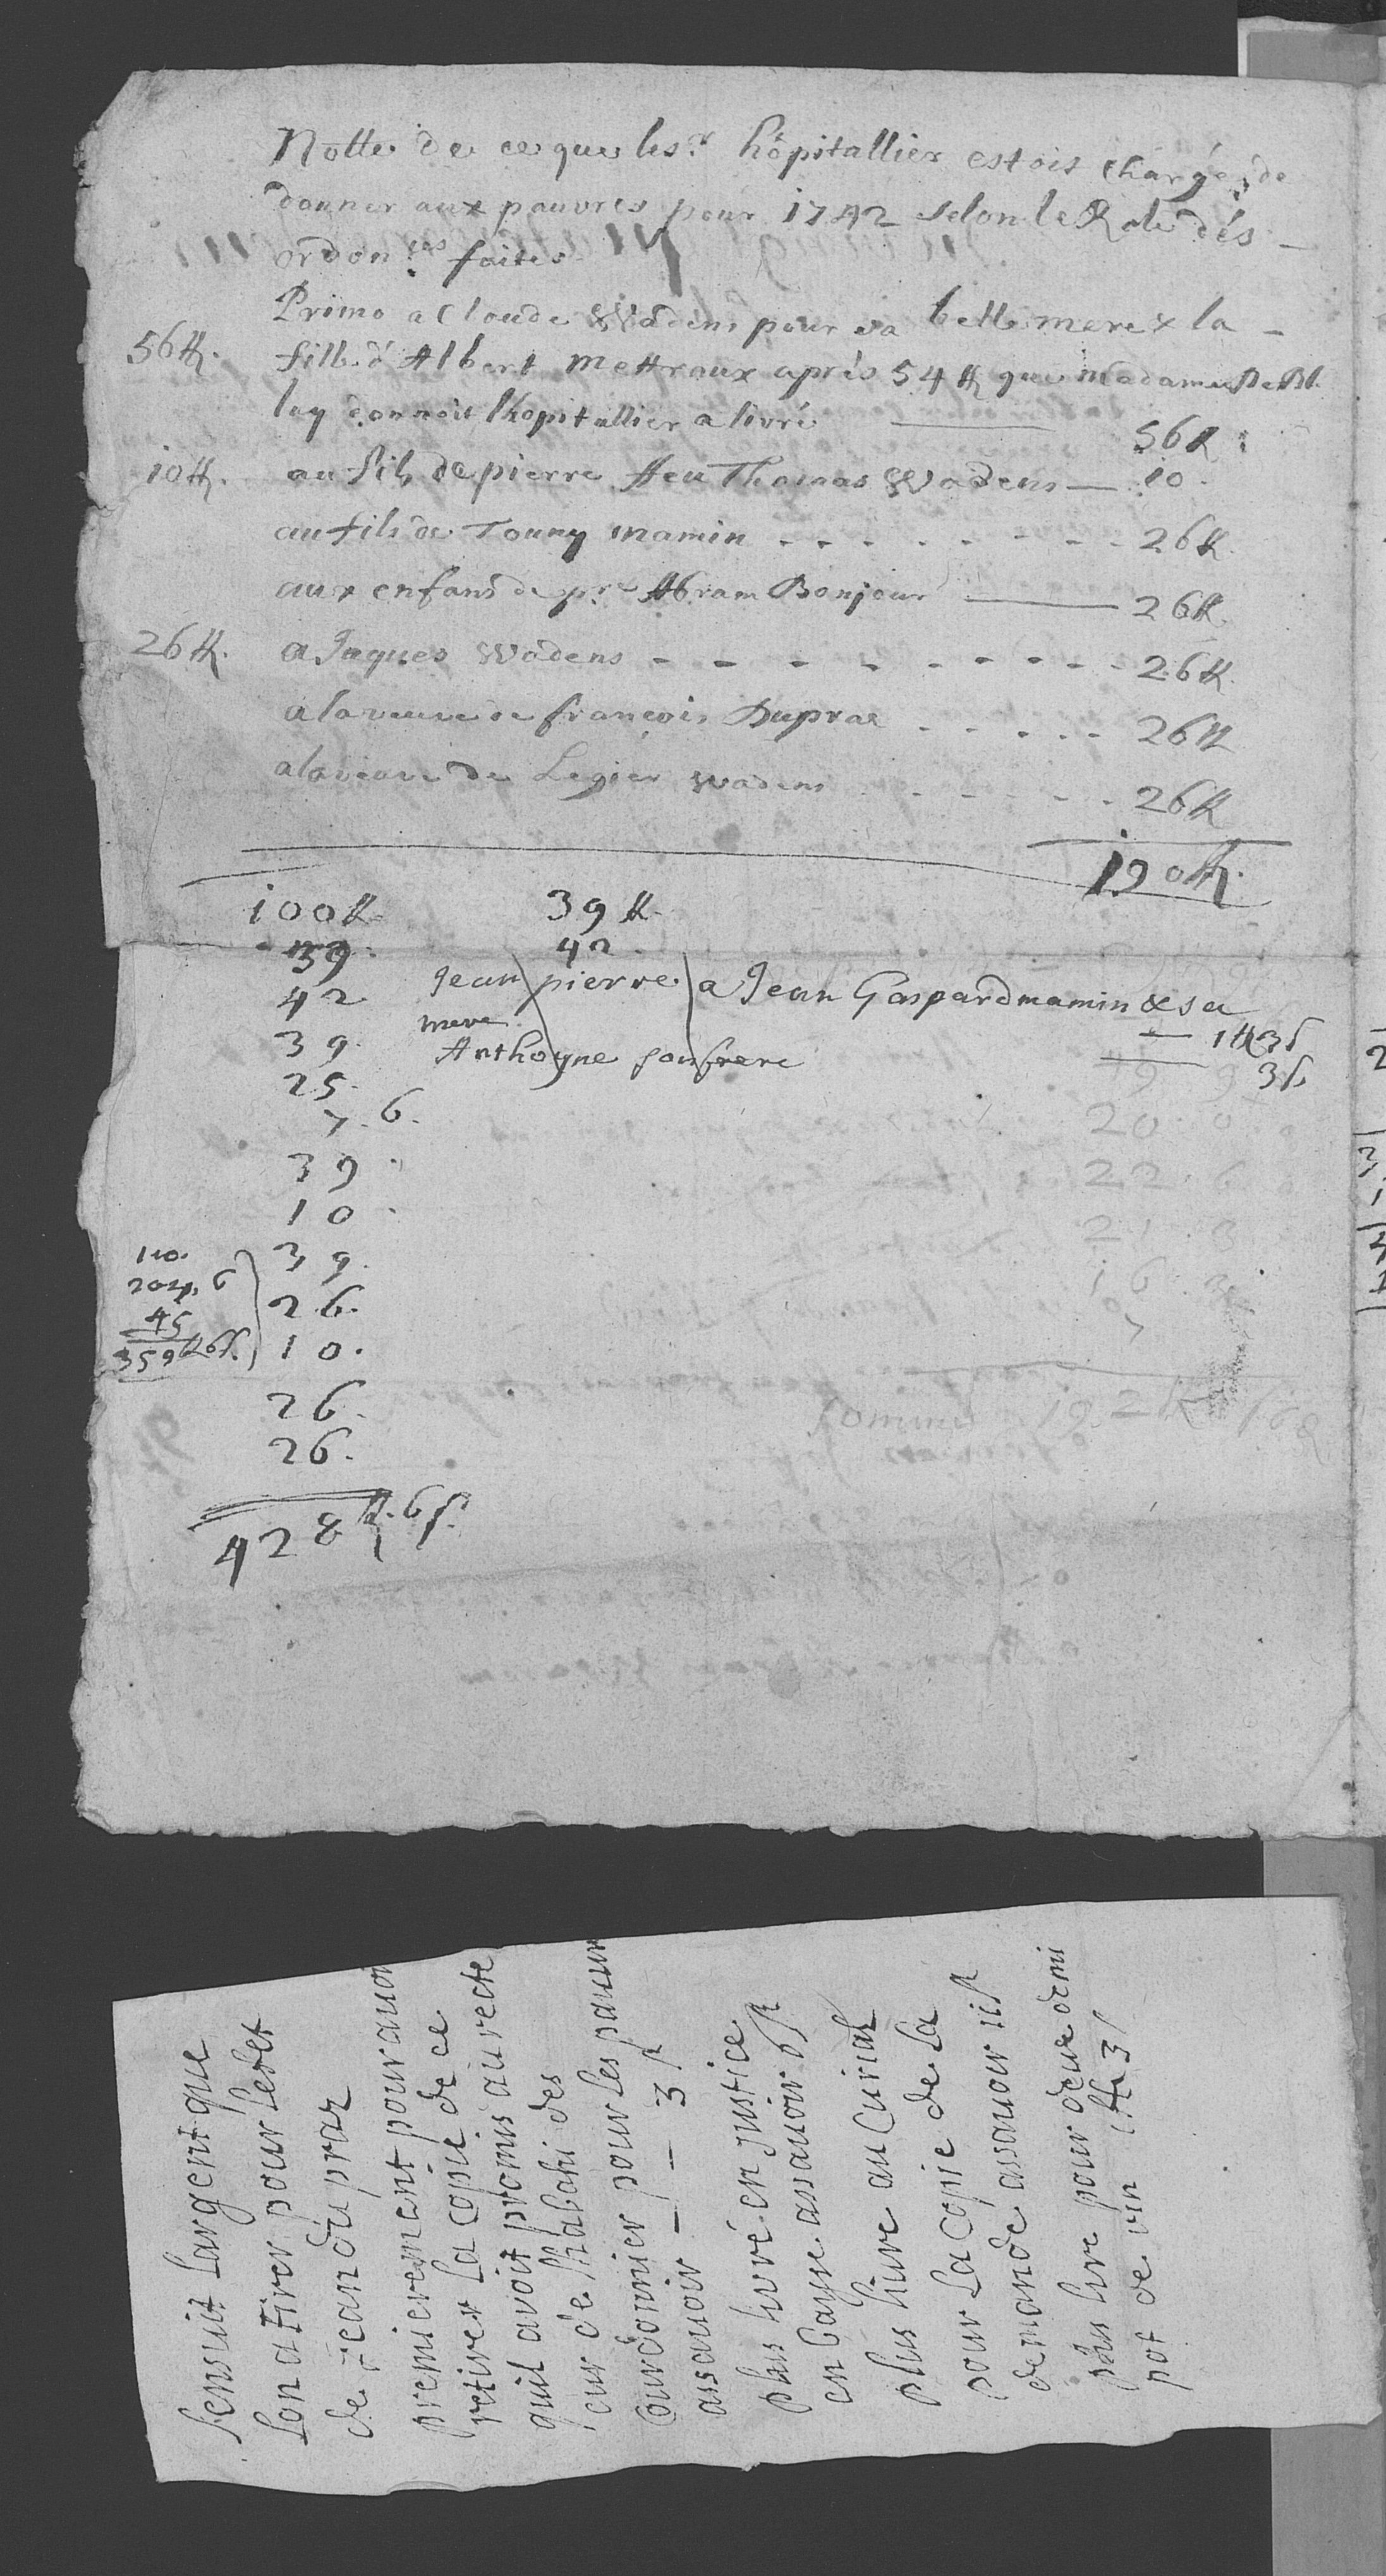 Notte de ce que le s.r hôpitallier estois chargé de
donner aux pauvres pour 1742 selon le Role dés
ordon.ces faites
Primo a Cloude Wadens pour sa belle mere & la
56 ℔. fille d'Albert Mettraux aprés 54 ℔ que Madame
luy donnoit lhopitallier a livré 56 ℔
10 ℔. au fils de pierre ffeu Thomas Wadens 10.
au fils de Touny mamin 26 ℔.
aux enfans de p.re Abram Bonjour 26 ℔.
26 ℔. a Jaques Wadens 26 ℔.
a la veuve de françois Duprae 26 ℔
a la veuve de Legier Wadens 26 ℔
190 ℔.
100 ℔ 39 ℔.
39. 42.
42 Jean pierre a Jean Gaspard mamin & sa
mere 1 ℔ 3 s
39. Anthoyne son frere 3 s
25.
7. 6.
39.
10.
110. 39.
204. 6 26.
45 10.
359 ℔ 6 s.
26.
26.
428 ℔. 6 s.
20 0
22 6
21 3
16 3
7
somme 192 ℔
Sensuit Largent que
Lon a tirer pour Lefet
de Jean du praz
premierement pour avoi
retirer La copie de ce
quil avoit promis au recte
eur de Mabahi des
courdonnier pour Les pauur
assavoir — — 3 s
plus livré en justice
en baye assavoir 6 s
plus livre au Curial
pour La copie de La
demande assavoir
plus livre pour deux demi
pot de vin 1 ℔ 3 s